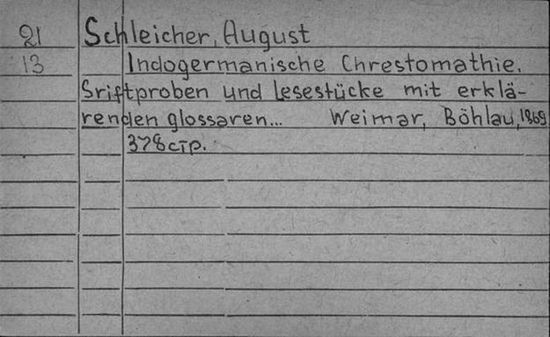 21 Schleicher, August
13 Indogermanische Chrestomathie.
Sriftproben und Lesestücke mit erklä-
renden glossaren... Weimar, Böhlau, 1869
378 стр.